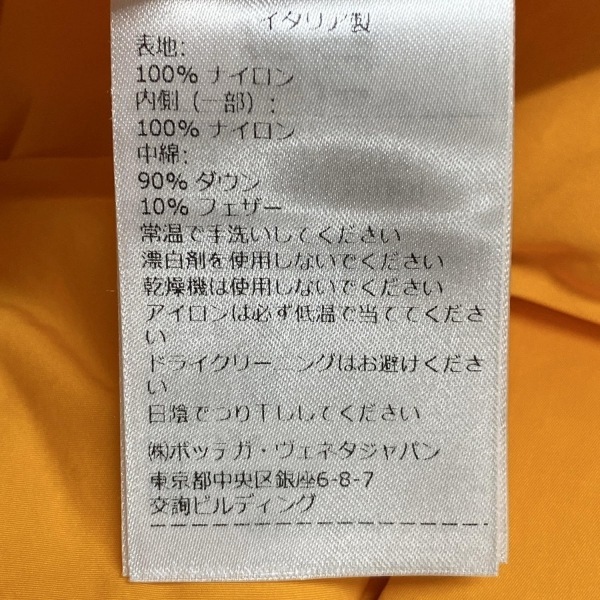 イタリア製
表地:
100% ナイロン
内側（一部）:
100% ナイロン
中綿:
90% ダウン
10% フェザー
常温で手洗いしてください
漂白剤を使用しないでください
乾燥機は使用しないでください
アイロンは必ず低温で当ててくださ
い
ドライクリーニングはお避けくださ
い
日陰でつり干ししてください
㈱ボッテガ・ヴェネタジャパン
東京都中央区銀座6-8-7
交詢ビルディング